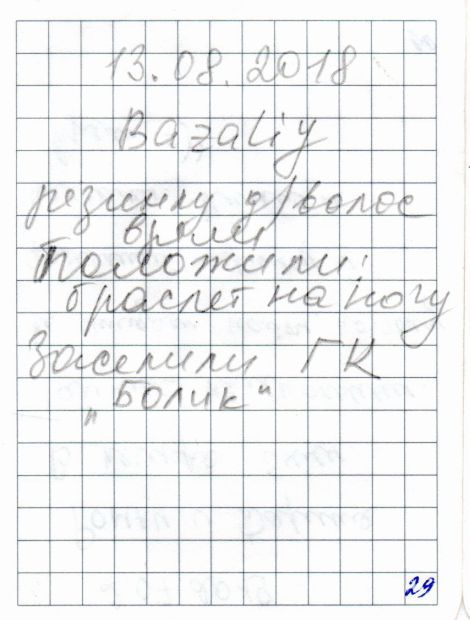 13.08.2018
Bazaliy
резинку д/волос
взяли
Положили:
браслет на ногу
Заселили ГК
„Болик“
29